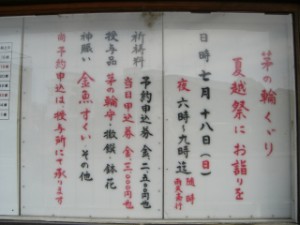 茅の輪くゞり
夏越祭にお詣りを
日時 七月十八日(日)
夜 六時〜九時迄 随時
雨天斎行
祈祷料 予約申込券 金二、五〇〇円也
当日申込券 金三、〇〇〇円也
授与品 茅の輪守・撤饌・鉢花
神賑い 金魚すくい その他
尚予約申込は授与所にて承ります